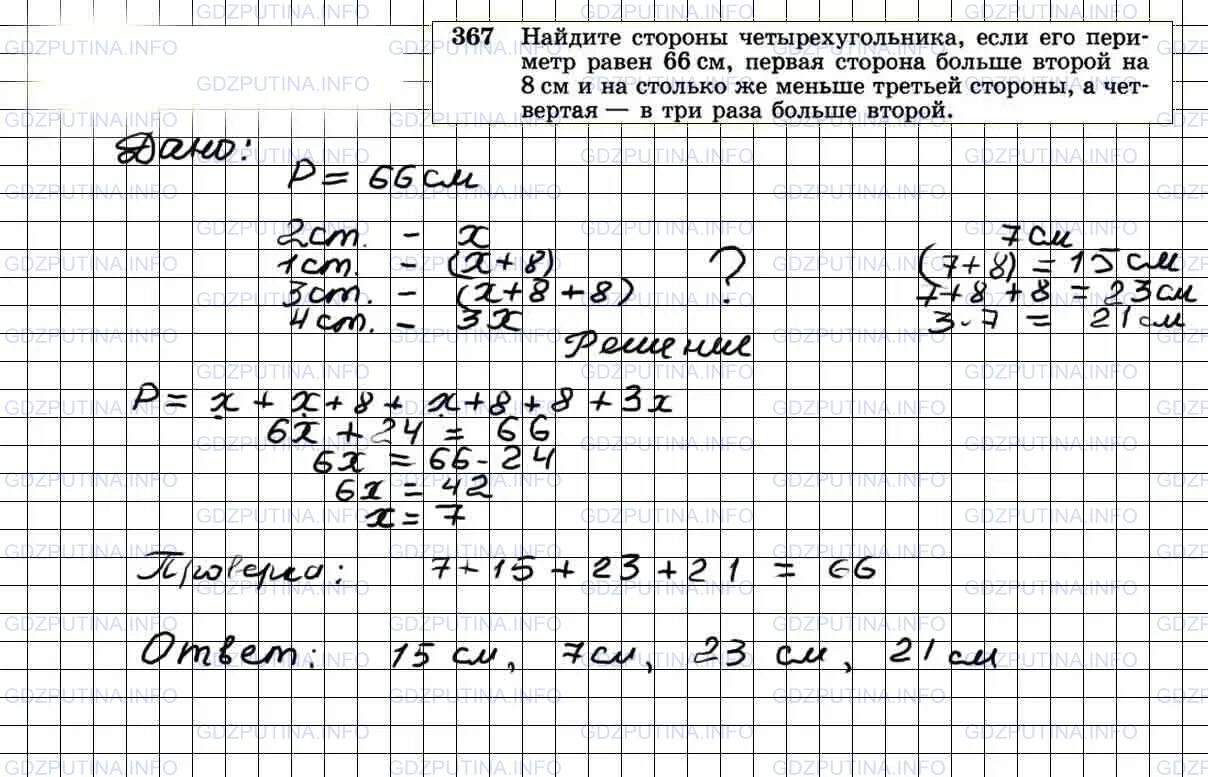 367 Найдите стороны четырехугольника, если его пери-
метр равен 66 см, первая сторона больше второй на
8 см и на столько же меньше третьей стороны, а чет-
вертая — в три раза больше второй.
Дано:
P = 66 см
2 ст. - x
7 см
1 ст. - (x + 8)
?
(7 + 8) = 15 см
3 ст. - (x + 8 + 8)
7 + 8 + 8 = 23 см
4 ст. - 3x
3 · 7 = 21 см
Решение
P = x + x + 8 + x + 8 + 8 + 3x
6x + 24 = 66
6x = 66 - 24
6x = 42
x = 7
Проверка: 7 + 15 + 23 + 21 = 66
Ответ: 15 см, 7 см, 23 см, 21 см
GDZPUTINA.INFO